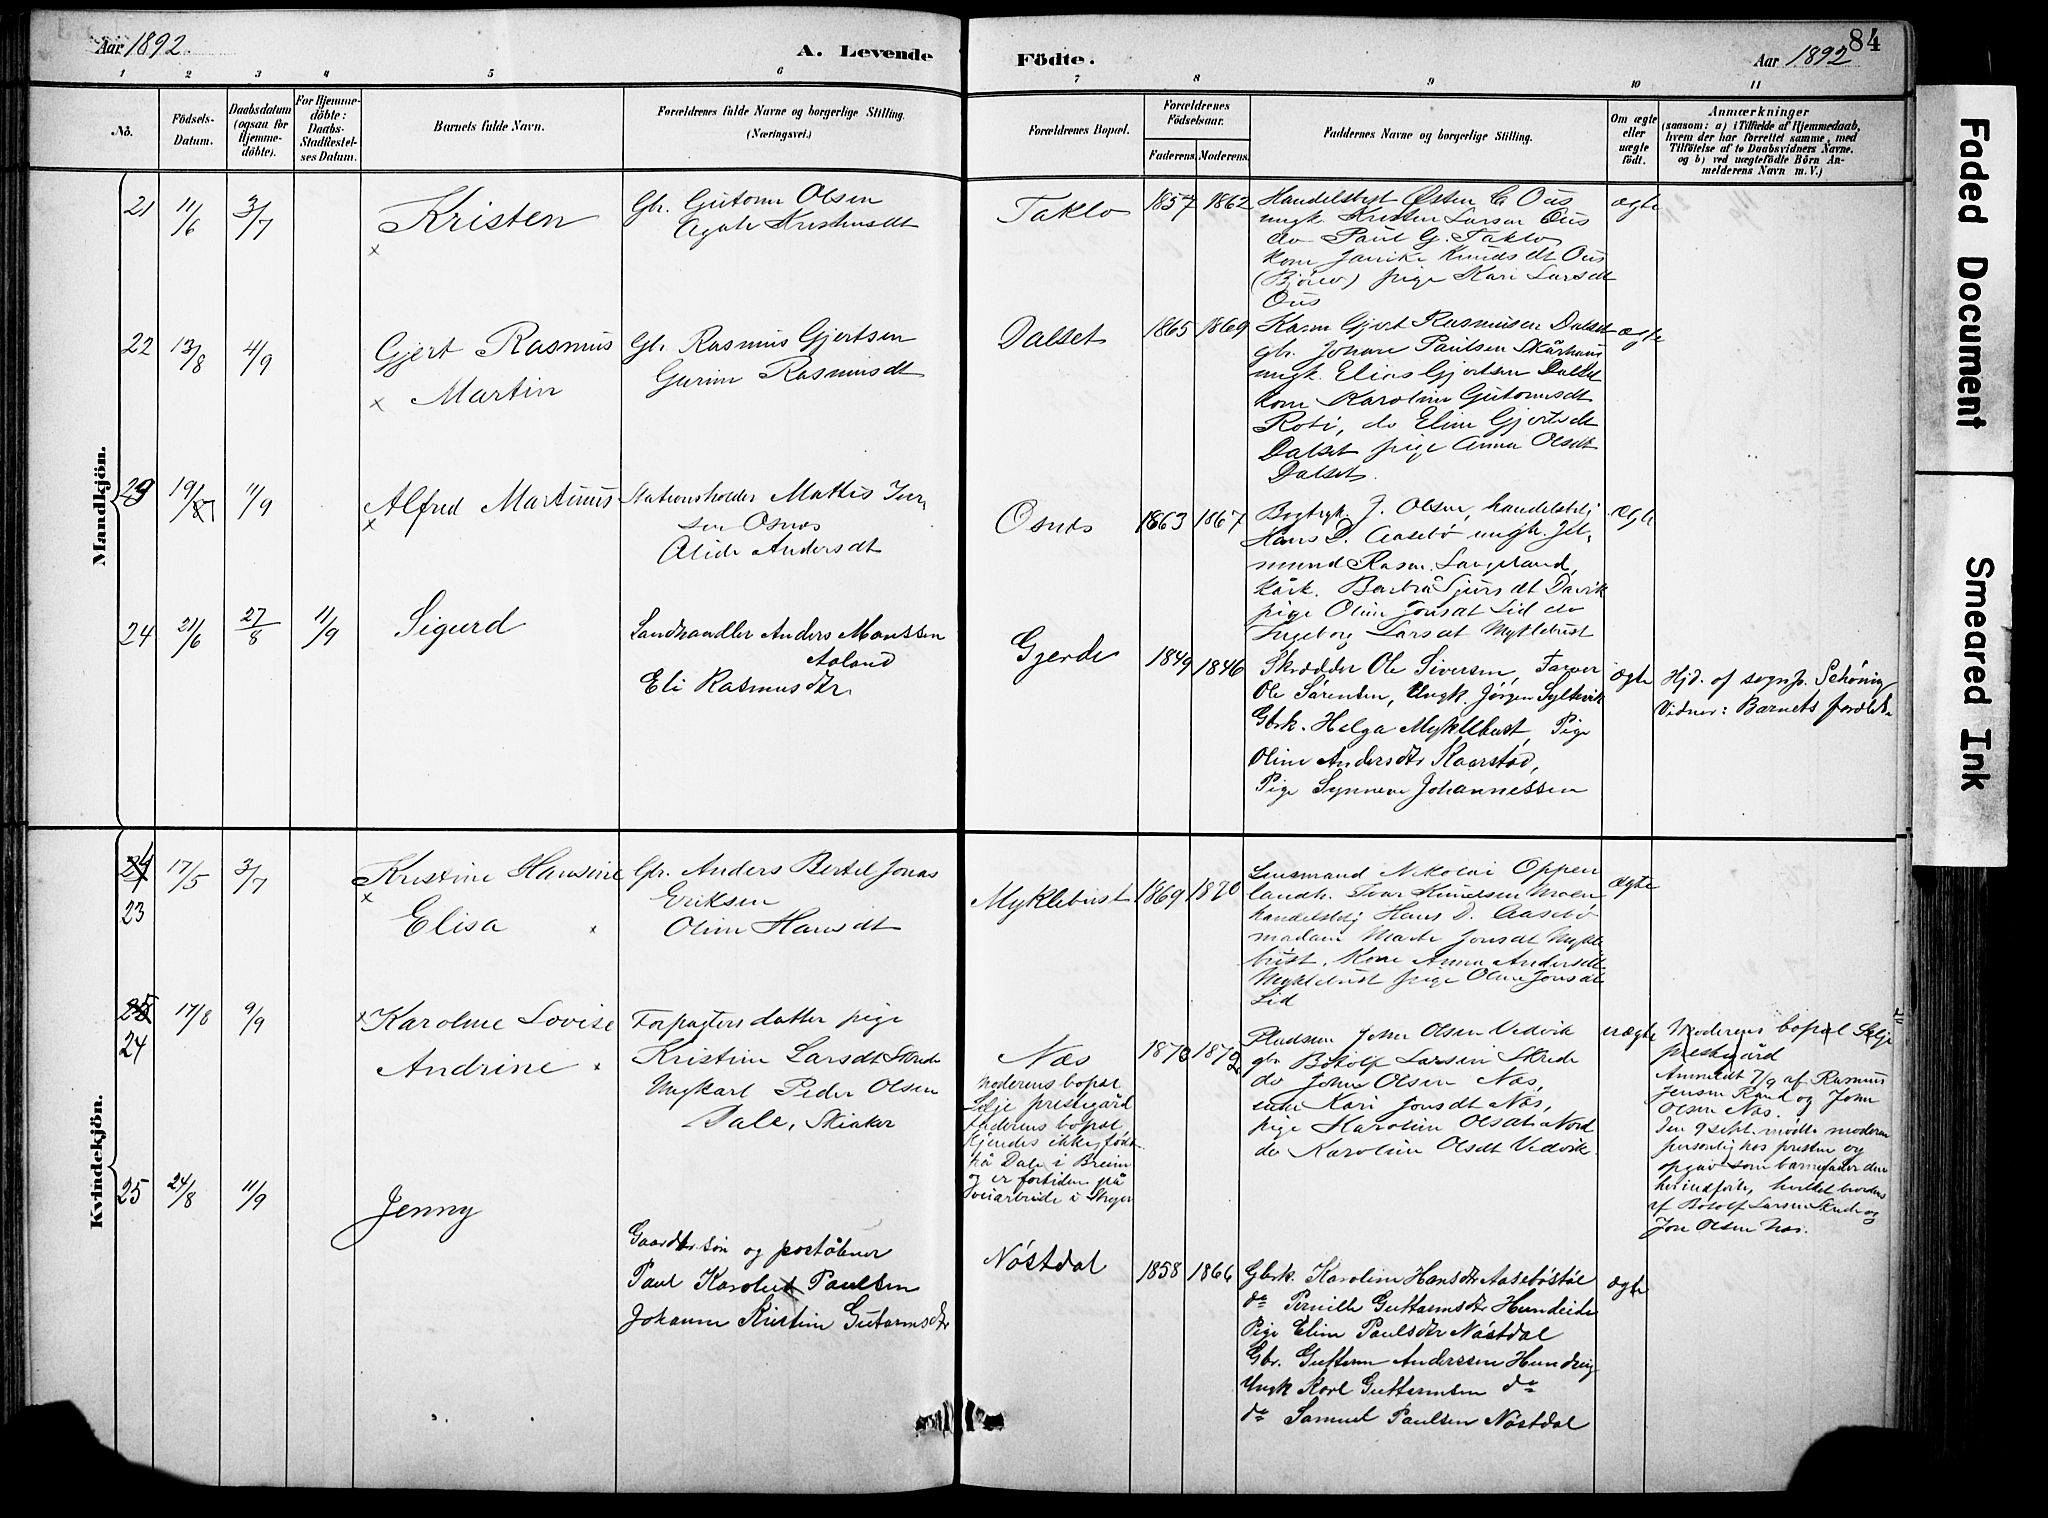 Aar 1892.
A. Levende Födte.
Aar 1892
84
1 2 3 4 5 6 7 8 9 10 11
No.
Födsels-
Datum.
Daabsdatum
(ogsaa for
Hjemme-
döbte).
For Hjemme-
döbte:
Daabs-
Stadfæstel-
ses Datum.
Barnets fulde Navn.
Forældrenes fulde Navne og borgerlige Stilling.
(Næringsvei.)
Forældrenes Bopæl.
Forældrenes
Födselsaar.
Faderens. Moderens.
Faddernes Navne og borgerlige Stilling.
Om ægte
eller
uægte
födt.
Anmærkninger
(saasom: a) i Tilfælde af Hjemmedaab,
hvem der har forrettet samme, med
Tilföielse af to Daabsvidners Navne.
og b) ved uægtefödte Börn An-
melderens Navn m. V.)
Mandkjön.
21 11/6 3/7 Kristen
Gbr. Gutorm Olsen
Takle
1857 1862
Handelsbest. Østen C Ous
ungk. Kristen Larsen Ous
do Paul G. Takle
kone Janike Knudsdt Ous
pige Kari Larsdt
Ous
ægte
22 13/8 4/9 Gjert Rasmus
Martin
Gbr. Rasmus Gjertsen
Gurine Rasmusdt
Dalset
1865 1869
Gjert Rasmussen Dalset
gbr. Johan Paulsen
ungk. Elias Gjertsen Dalset
kone Karoline Gutormsdt
Roti, do Eline Gjertsdt
Dalset pige Anna Olsdt
Dalset.
ægte
23 19/8 11/9 Alfred Martinus
Stationsholder Mattis Iver-
sen Osnes
Alide Andersdt
Osnes
1863 1867
J. Olsen, handelsbetj
Hans D. Aasebö ungk. Jet-
mund Rasm. Langeland,
Barbra Sjursdt Davik
pige Oline Jonsdt Lid do
Ingeborg Larsdt Myklebust
ægte
24 21/6 27/8 11/9 Sigurd
Landhandler Anders Monssen
Aaland
Eli Rasmusdtr.
Gjerde
1849 1846
Skrædder Ole Siversen, Farver
Ole Sørensen, Ungk. Jörgen Syltevik
Gbrk. Helga Myklebust, Pige
Oline Andersdtr Kaarstad,
Pige Synneve Johannessen
ægte
Hjd. af sognpr. Schöning
Vidner: Barnets forældre
Kvindekjön.
24
23
17/5 3/7 Kristine Hansine
Elisa
Gbr. Anders Bertel Jonas
Eriksen
Oline Hansdt
Myklebust
1869 1870
Lensmand Nikolai Oppen
landh. Ivar Knudsen Moen
handelsbetj Hans D. Aasebö
madam Marte Jonsdt Mykle-
bust. Kone Anna Andersdt
Myklebust pige Oline Jonsdt
Lid
ægte
25
24
17/8 9/9 Karoline Lovise
Andrine
Forpagters datter pige
Kristine Larsdt Skrede
Ungkarl Peder Olsen
Dale, Skiaker
Næs
Moderens bopæl
Selje prestegård
Faderens bopæl
kjendes ikke, født
på Dale i Breim
og er fortiden på
veiarbeide i Stryn
Pladsm John Olsen Vedvik
gbr. Botolf Larsen Skrede
do John Olsen Næs,
enke Kari Jonsdt Næs,
pige Karoline Olsdt Nord
do Karoline Olsdt Vedvik.
uægte
Moderens bopæl Selje
prestegård
Anmeldt 7/9 af Rasmus
Jensen Rand og John
Olsen Næs.
Den 9 sept. mödte moderen
personlig hos presten og
opgav som barnefader den
her indførte, hvilket bevidnes
af Botolf Larsen Skrede og
Jon Olsen Næs.
25 24/8 11/9 Jenny
Gaardbr.sön og poståbner
Paul Karolus Paulsen
Johanne Kristine Gutormsdtr
Nöstdal
1858 1866
Gbrk. Karoline Hansdtr Aaseböstöl
do Pernille Guttormsdtr Hundeide
Pige Eline Paulsdtr Nöstdal
Gbr. Guttorm Anderssen Hundeig
Ungk Karl Guttormsen do
do Samuel Paulsen Nöstdal
ægte
Faded Document
Smeared Ink